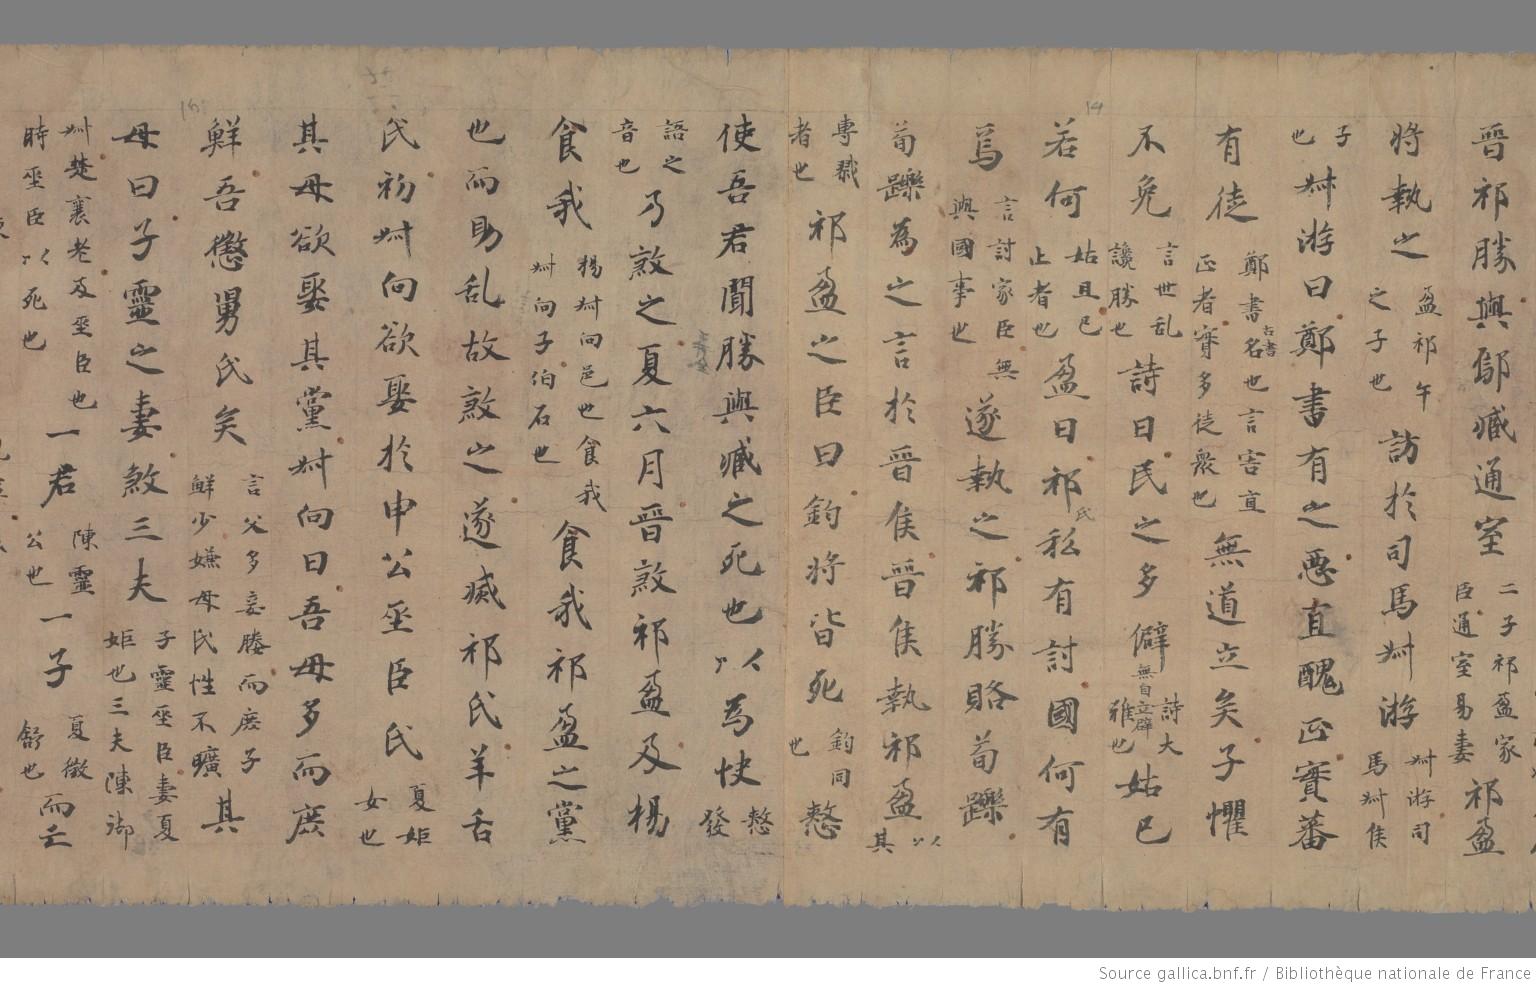 晉祁勝與鄔臧通室二子祁盈家臣通室易妻祁盈
將執之盈祁午之子也訪於司馬叔游叔游司馬叔侯
子也叔游曰鄭書有之惡直醜正實蕃
有徒鄭書古書名也言害直正者實多徒衆也無道立矣子懼
不免言世乱讒勝也詩曰民之多僻無自立辟詩大雅也姑已
若何姑且已止者也盈曰祁氏私有討國何有
焉言討家臣無與國事也遂執之祁勝賂荀躒
荀躒為之言於晉侯晉侯執祁盈以其
專戮者也祁盈之臣曰鈞將皆死鈞同也憗
使吾君聞勝與臧之死也以為快憗發
語之音也乃煞之夏六月晉煞祁盈及楊
食我楊叔向邑也食我叔向子伯石也食我祁盈之黨
也而助乱故煞之遂滅祁氏羊舌
氏初叔向欲娶於申公巫臣氏夏姬女也
其母欲娶其黨叔向曰吾母多而庶
鮮吾懲舅氏矣言父多妾媵而庶子鮮少嫌母氏性不曠其
母曰子靈之妻煞三夫子靈巫臣妻夏姬也三夫陳御
叔楚襄老及巫臣也時巫臣以死也一君陳靈公也一子夏徵舒也而亡
Source gallica.bnf.fr / Bibliothèque nationale de France